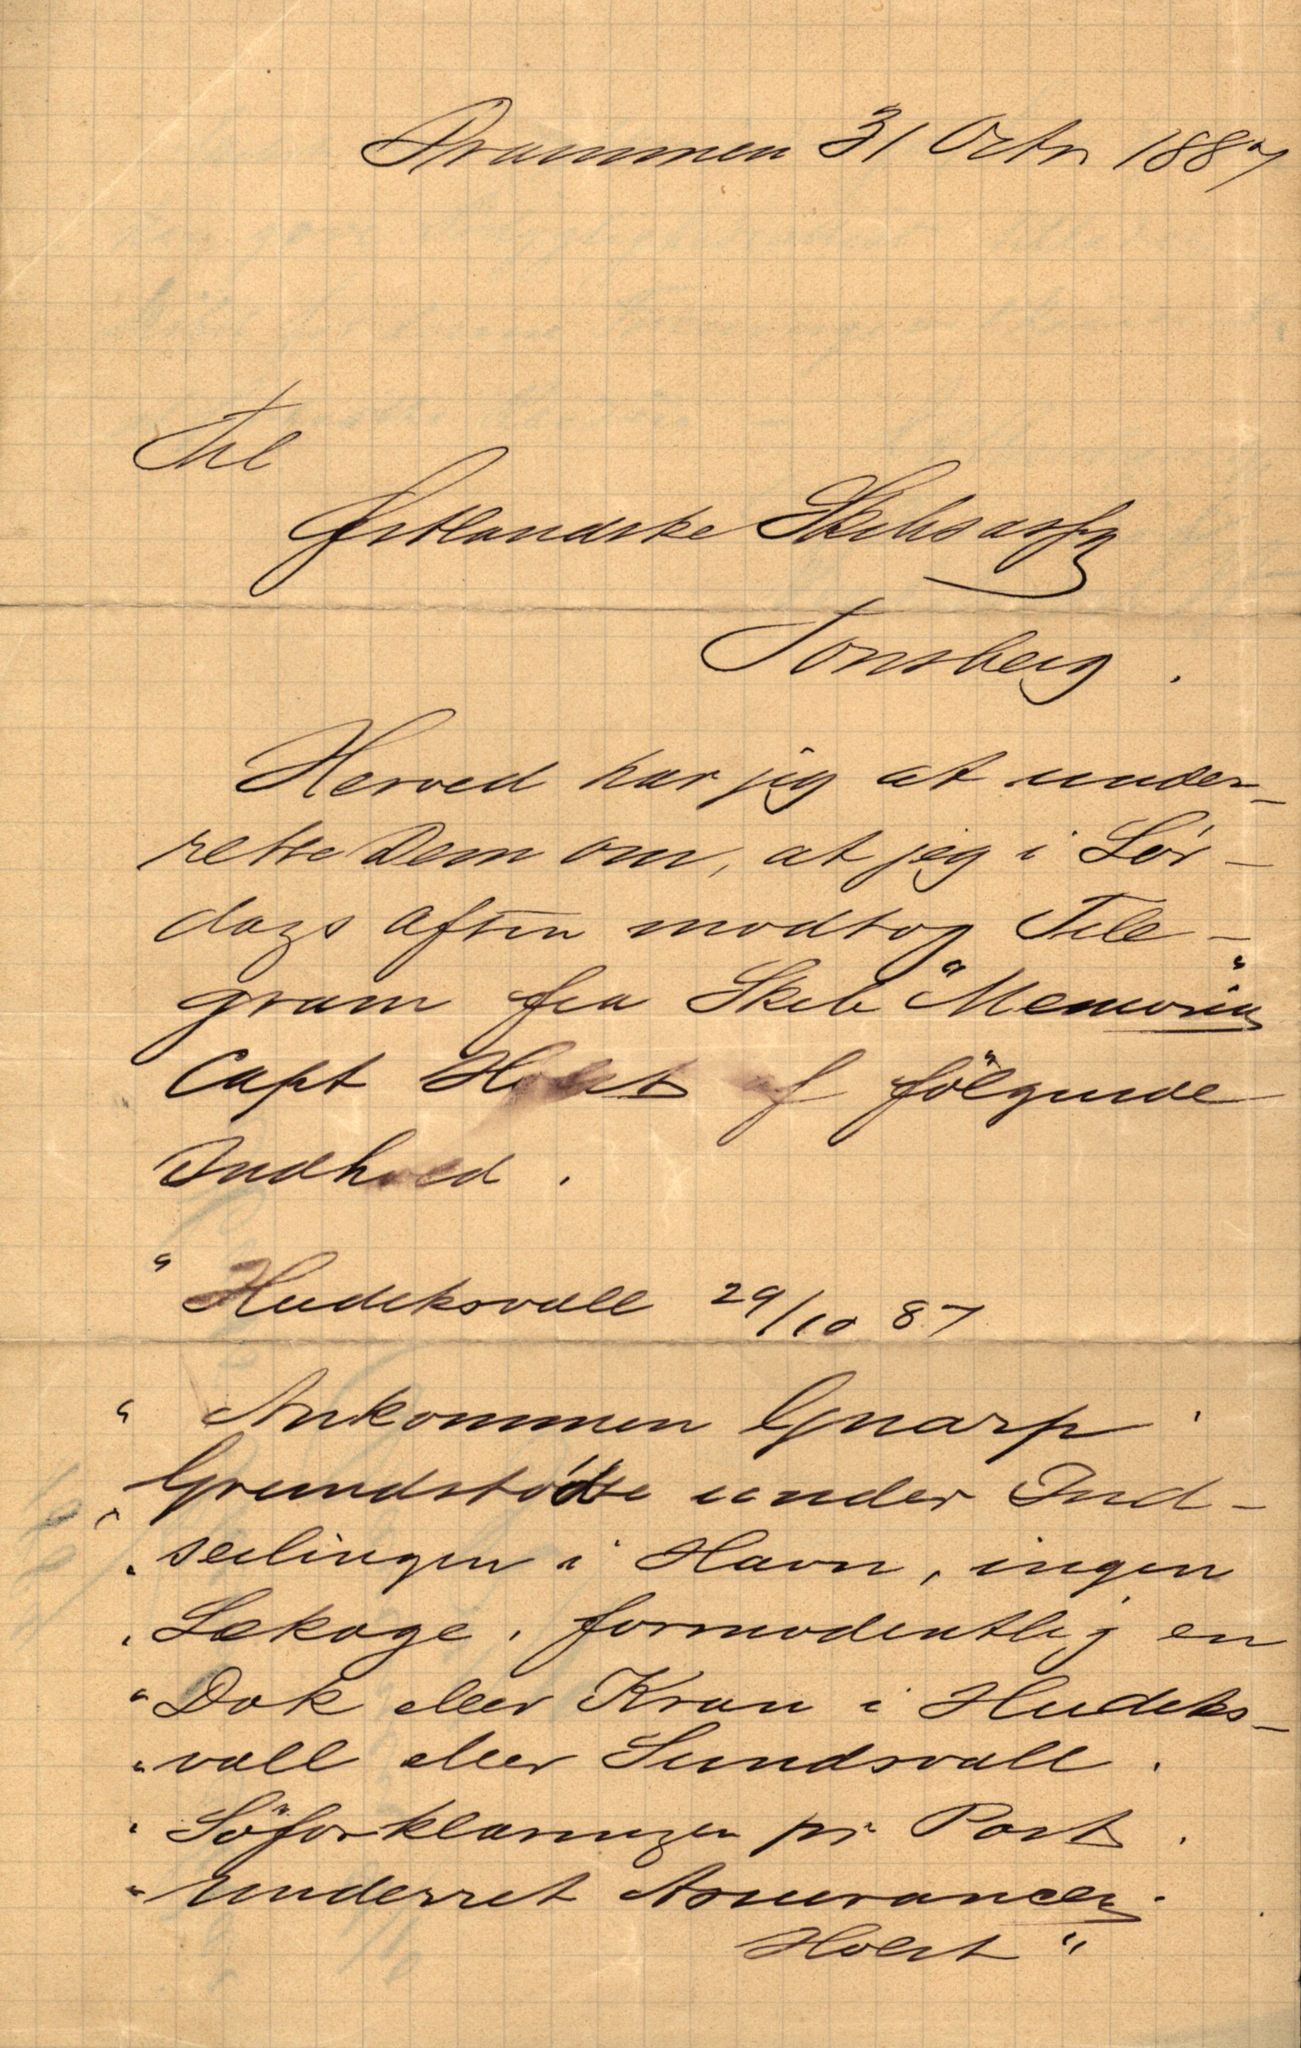 Drammen 31 Octr 1887
Til
Østlandske Skibsassf
Tønsberg.
Herved har jeg at under-
rette Dem om, at jeg i Lør-
dags aften modtog Tele-
gram fra Skib "Memoria"
Capt Holst af følgende
Indhold.
"Hudeksvall 29/10 87
"Ankommen Gnarp.
"Grundstødte under Ind-
"seilingen i Havn, ingen
"Lækage. formodentlig en
"Dok eller Kran i Hudeks-
"vall eller Sundsvall.
"Söforklaringen pr Post.
"underret Assurancen.
Holst"